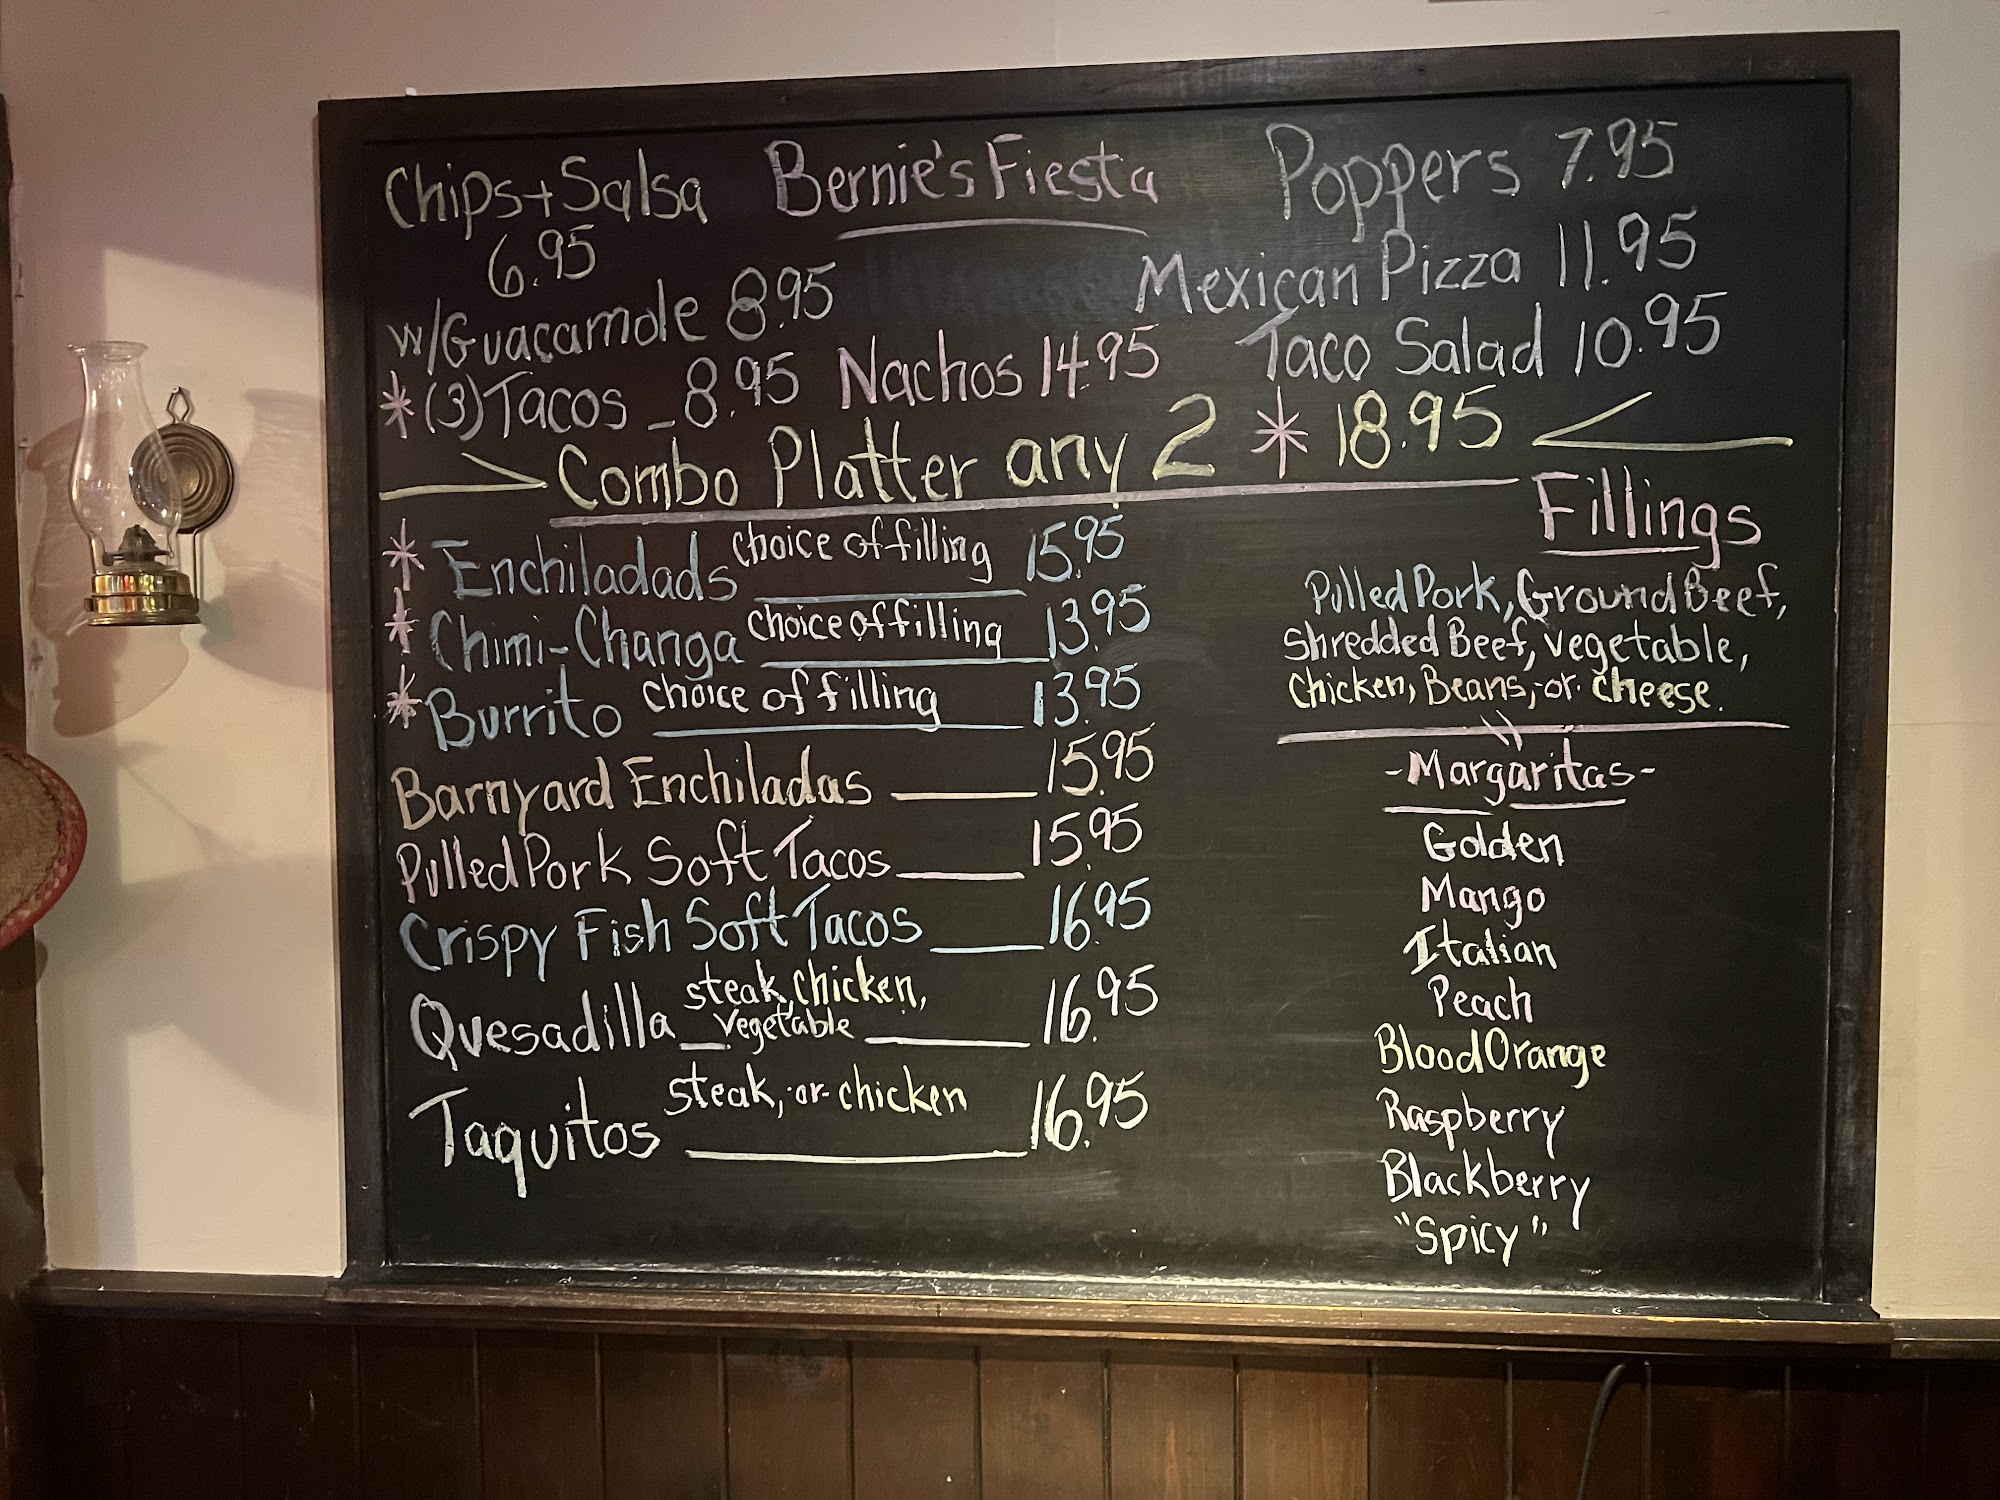 Bernie's Fiesta
Chips + Salsa
6.95
w/Guacamole 8.95
* (3) Tacos _ 8.95
Nachos 14.95
Poppers 7.95
Mexican Pizza 11.95
Taco Salad 10.95
Combo Platter any 2 * 18.95
* Enchiladads choice of filling 15.95
* Chimi-Changa choice of filling 13.95
* Burrito choice of filling 13.95
Barnyard Enchiladas 15.95
Pulled Pork Soft Tacos 15.95
Crispy Fish Soft Tacos 16.95
Quesadilla steak, chicken,
vegetable 16.95
Taquitos steak, -or- chicken 16.95
Fillings
Pulled Pork, Ground Beef,
Shredded Beef, Vegetable,
Chicken, Beans, -or- Cheese.
-Margaritas-
Golden
Mango
Italian
Peach
Blood Orange
Raspberry
Blackberry
"Spicy"